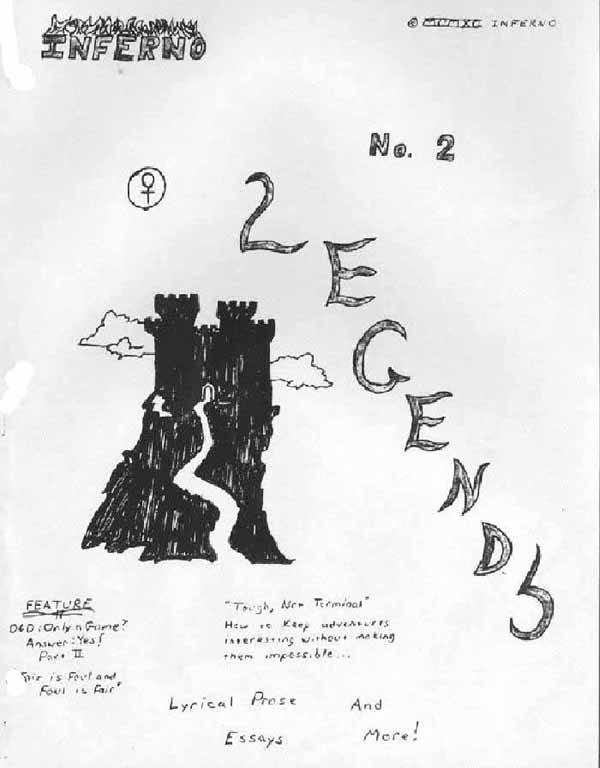 INFERNO
© MCMXC INFERNO
No. 2
LEGENDS
FEATURE
D&D: Only a Game?
Answer: Yes!
Part II
"Fair is Foul and
Foul is Fair"
"Tough, Not Terminal"
How to Keep adventures
interesting without making
them impossible...
Lyrical Prose And
Essays More!